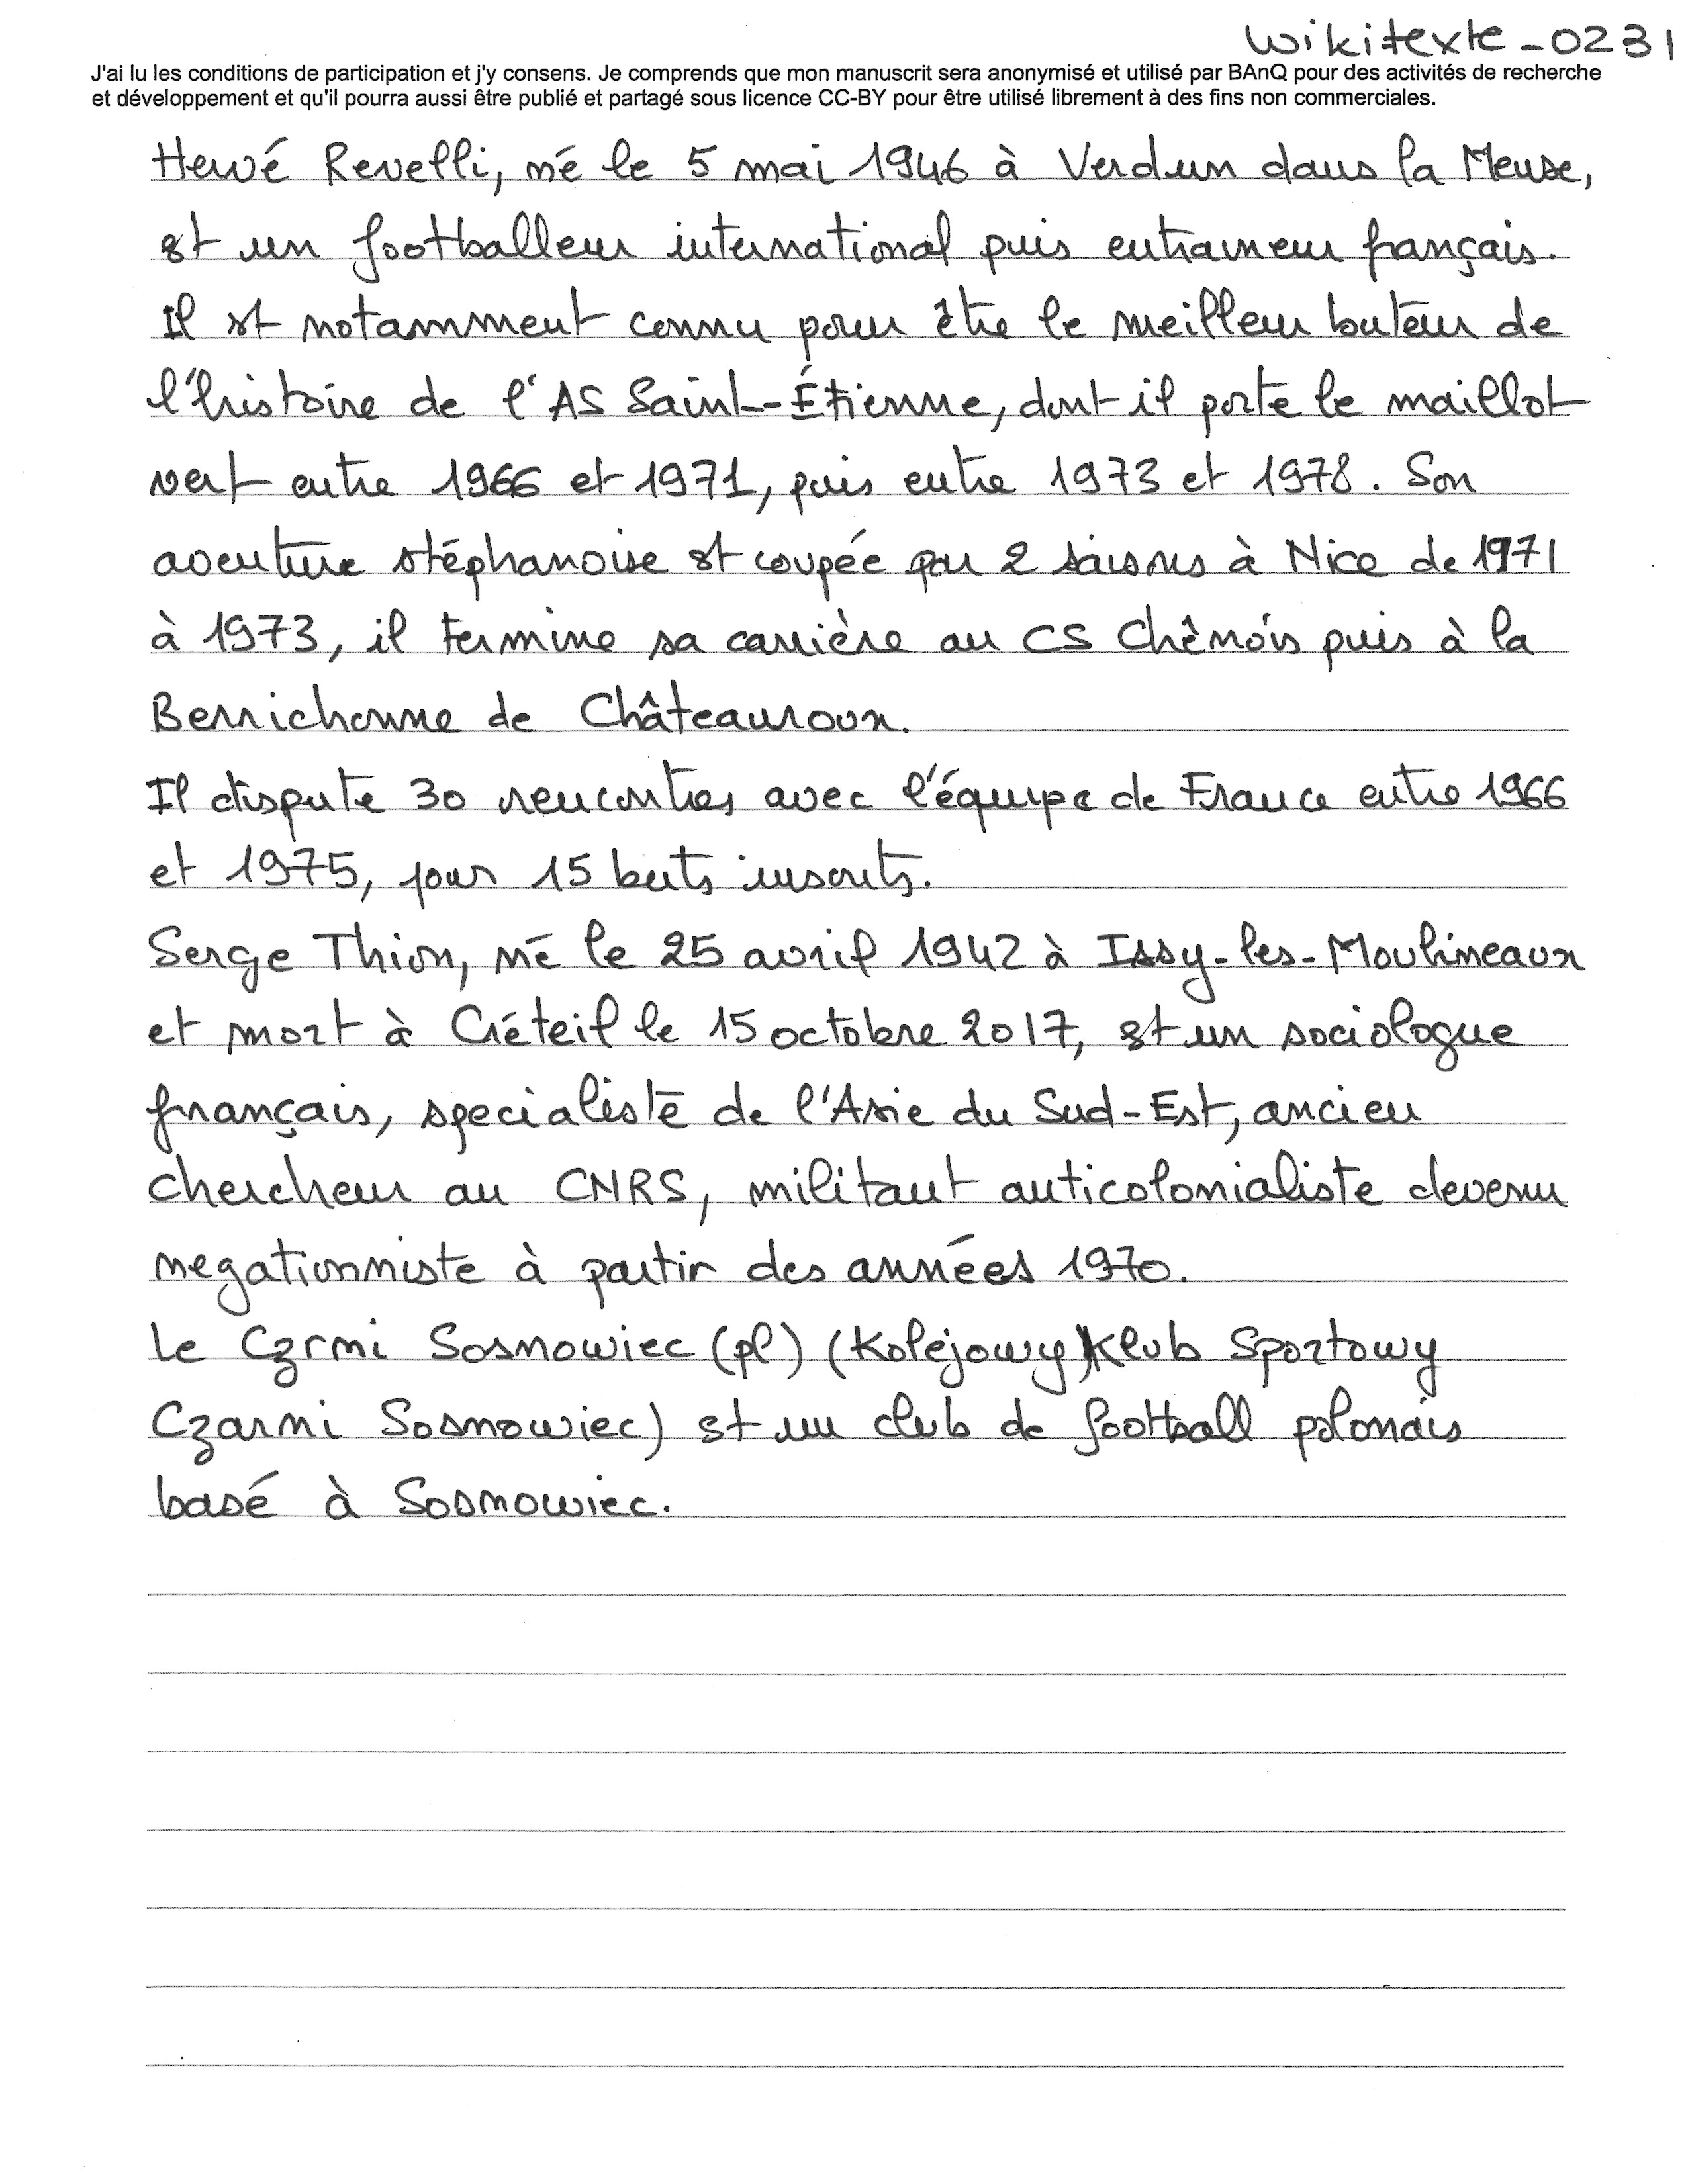 wikitexte-0231
J'ai lu les conditions de participation et j'y consens. Je comprends que mon manuscrit sera anonymisé et utilisé par BAnQ pour des activités de recherche
et développement et qu'il pourra aussi être publié et partagé sous licence CC-BY pour être utilisé librement à des fins non commerciales.
Hervé Revelli, né le 5 mai 1946 à Verdun dans la Meuse,
est un footballeur international puis entraineur français.
Il est notamment connu pour être le meilleur buteur de
l'histoire de l'AS Saint-Étienne, dont il porte le maillot
vert entre 1966 et 1971, puis entre 1973 et 1978. Son
aventure stéphanoise est coupée par 2 saisons à Nice de 1971
à 1973, il termine sa carrière au CS Chênois puis à la
Berrichonne de Châteauroux.
Il dispute 30 rencontres avec l'équipe de France entre 1966
et 1975, pour 15 buts inscrits.
Serge Thion, né le 25 avril 1942 à Issy-les-Moulineaux
et mort à Créteil le 15 octobre 2017, est un sociologue
français, specialiste de l'Asie du Sud-Est, ancien
chercheur au CNRS, militant anticolonialiste devenu
negationniste à partir des années 1970.
Le Czrni Sosnowiec (pl) (Kolejowy Klub Sportowy
Czarni Sosnowiec) est un club de football polonais
basé à Sosnowiec.